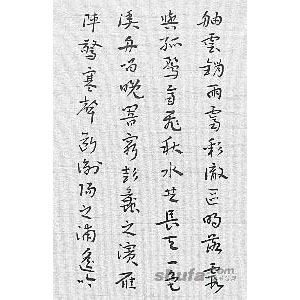 舳雲銷雨霽彩徹區明落霞
與孤鶩齊飛秋水共長天一色
漁舟唱晚響窮彭蠡之濱雁
陣驚寒聲斷衡陽之浦遙吟